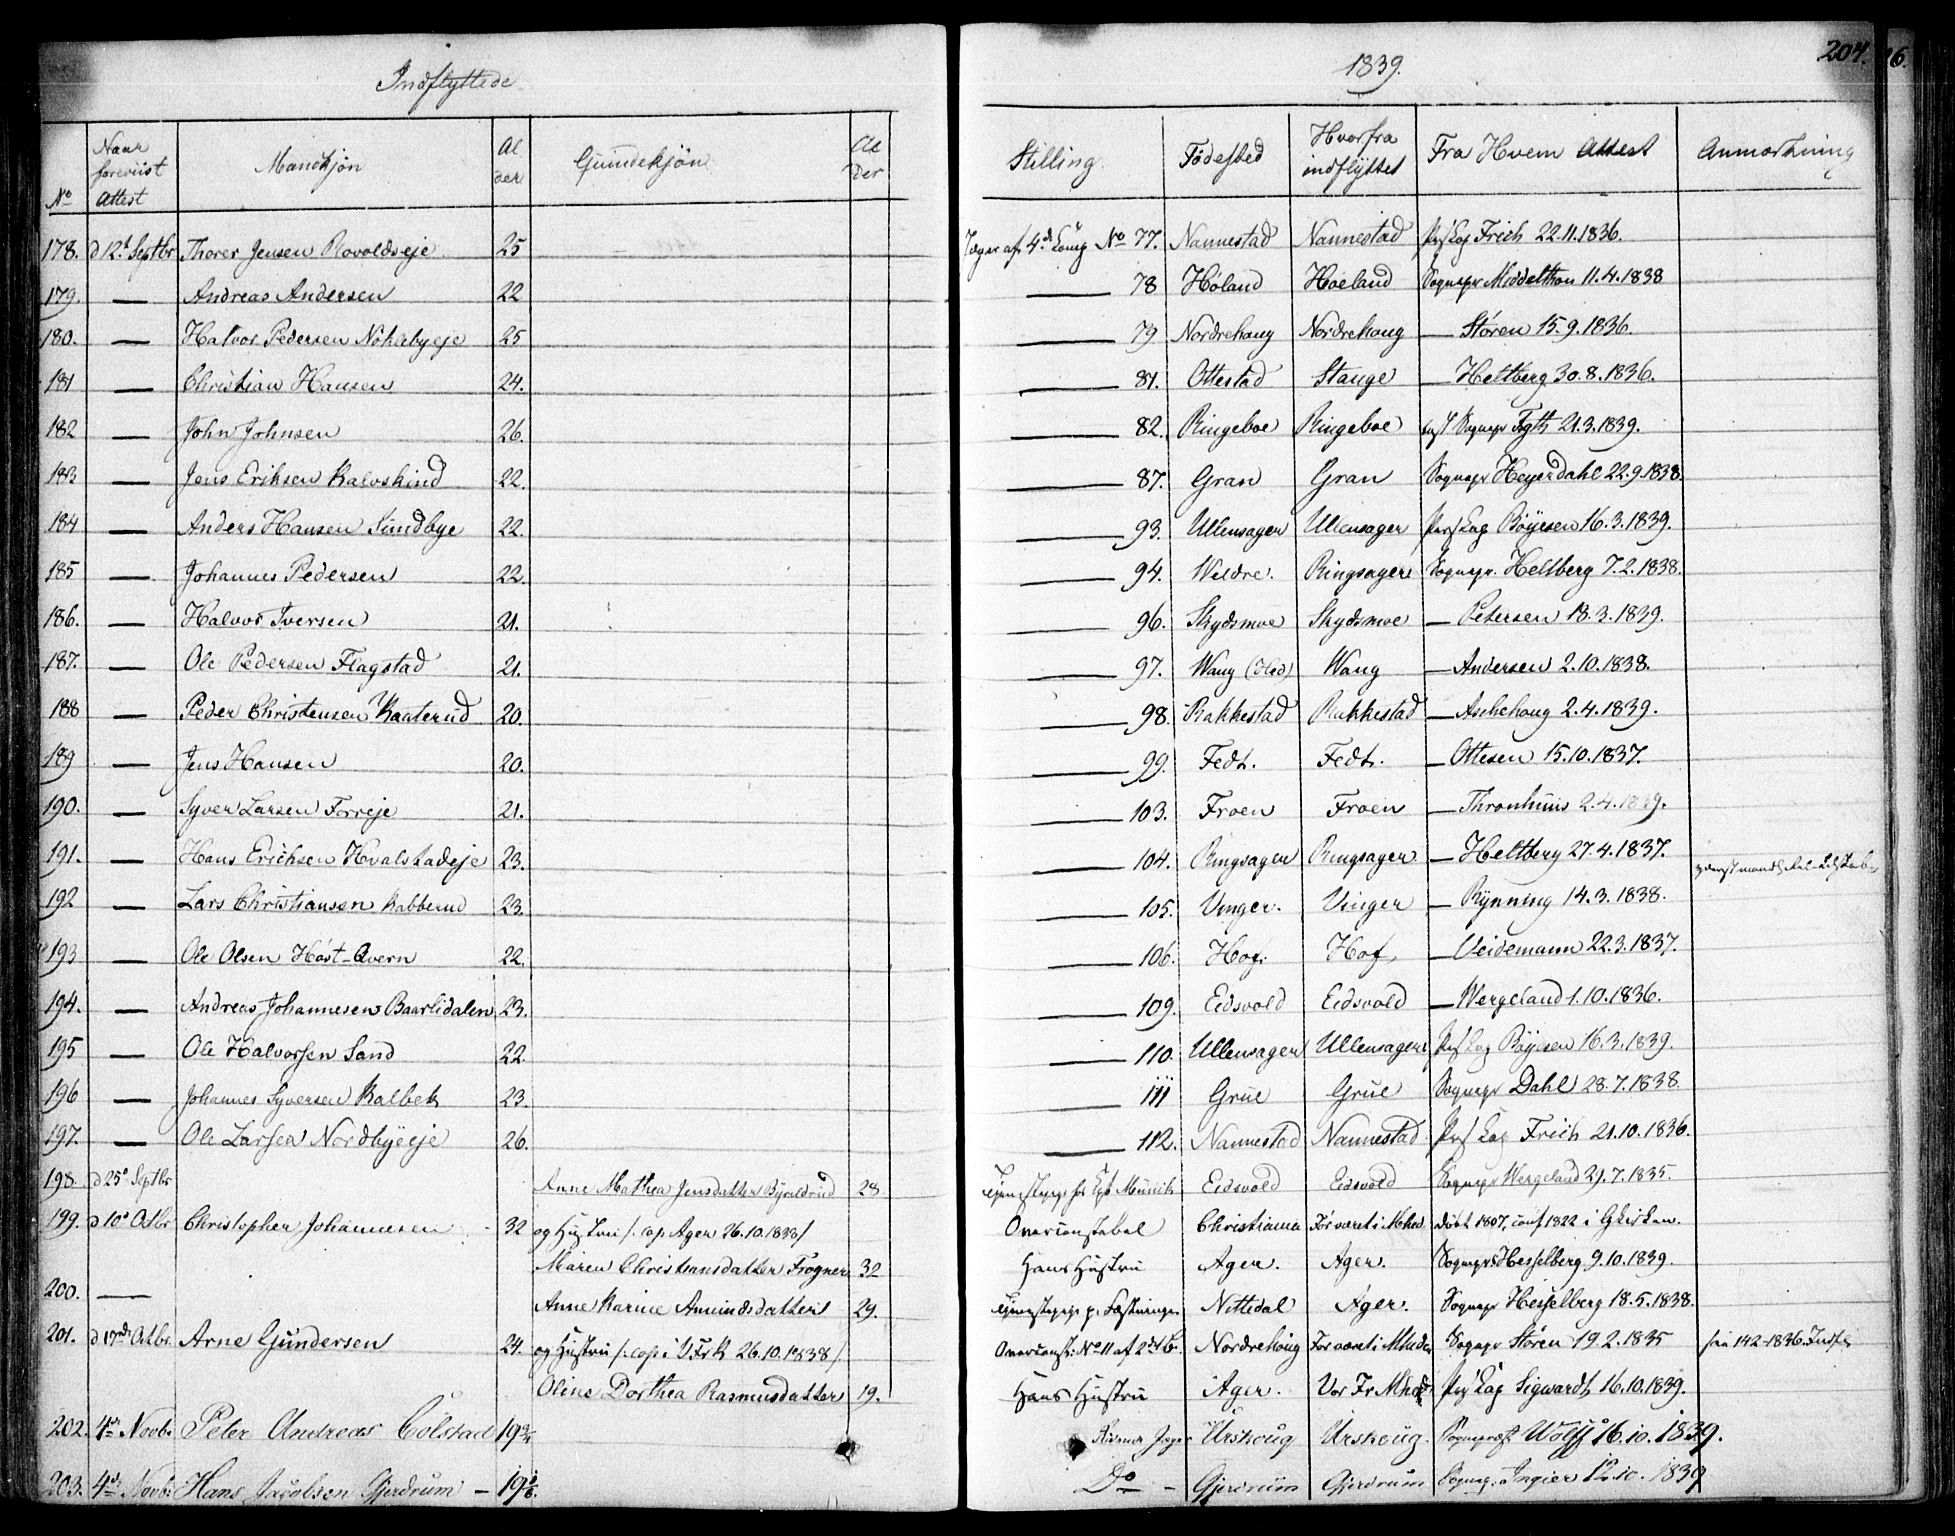 Indflyttede
1839.
204.
16.
No Naar foreviist Attest Mandkjøn Alder Qvindekjøn Alder Stilling. Fødested Hvorfra indflyttet Fra Hvem Attest Anmærkning
178. d 12t Septbr Thorer Jensen Rovoldseje 25 Jæger af 4de Comp No 77. Nannestad Nannestad Perf Cap Frich 22.11.1836.
179. — Andreas Andersen 22 — 78 Høland Høeland Sognepr Middelthon 11.4.1838
180. — Halvor Pedersen Nokabyeje 25 — 79 Nordrehoug Nordrehoug — Støren 15.9.1836.
181 — Christian Hansen 24. — 81. Ottestad Stange — Heltberg 30.8.1836.
182 — John Johnsen 26. — 82. Ringeboe Ringeboe Sognepr Fogth 21.3.1839.
183 — Jens Eriksen Kalvskind 22. — 87. Gran Gran Sognepr Heyerdahl 22.9.1838.
184 — Anders Hansen Sundbye 22. — 93. Ullensager Ullensager Pers Cap Böyesen 16.3.1839.
185 — Johannes Pedersen 22. — 94. Weldre. Ringsager Sognepr. Heltberg 7.2.1838.
186. — Halvor Iversen 21. — 96. Skydsmoe Skydsmoe — Petersen 18.3.1839.
187. — Ole Pedersen Flagstad 21. — 97. Wang (Hed) Wang — Andersen 2.10.1838.
188 — Peder Christensen Kaaterud 20. — 98. Rakkestad Rakkestad — Aschehoug 2.4.1839.
189 — Jens Hansen 20. — 99. Fedt. Fedt. — Ottesen 15.10.1837.
190. — Syver Larsen Forreje 21. — 103. Froen Froen — Thronhuus 2.4.1839.
191. — Hans Erichsen Hvalstadeje 23. — 104. Ringsager Ringsager — Heltberg 27.4.1837.
192 — Lars Christiansen Kabberud 23. — 105. Vinger. Vinger — Rynning 14.3.1838.
193 — Ole Olsen Höst-Qvern 22. — 106. Hof. Hof. — Veidemann 22.3.1837.
194. — Andreas Johannesen Baarlidalen 23. — 109. Eidsvold Eidsvold — Wergeland 1.10.1836.
195 — Ole Halvorsen Sand 22 — 110. Ullensager Ullensager Pers Cap Böyesen 16.3.1839.
196 — Johannes Syversen Kalbek 23. — 111 Grue Grue Sognepr Dahl 28.7.1838.
197. — Ole Larsen Nordbyeeje 26. — 112. Nannestad Nannestad Pers Cap Frich 21.10.1836.
198 d 25e Septbr Anne Mathea Jensdatter Byraldrud 28 Tjenstepige for Cpt Munch Eidsvold Eidsvold Sognepr Wergeland 29.7.1835.
199. d 10e Octbr Christopher Johannesen 32 og Hustru /: cop. Ager 26.10.1838/ Overconstabel Christiania Før været i Mhed. døbt 1807, conf 1822 i Gkirken.
Maren Christiansdatter Frogner 32 Hans Hustru Ager. Ager. Sognepr Hesselberg 9.10.1839.
200. — Anne Karine Amundsdatter 29. Tjenstepige p. Fæstningen Nittedal Ager. Sognepr Hesselberg 18.5.1838.
201. d 17de Octbr. Arne Gundersen 24. og Hustru /: cop. i VFrK 26.10.1838/. Overconst. No 11 af 2det B. Nordrehoug For været i Mhede Sognepr Støren 19.2.1835 fra 142-1836. Indfl
Oline Dorthea Rasmusdatter 19. Hans Hustru Ager. Vor Fr Mhed Pers Cap Sigwardt 16.10.1839.
202. 4de Novbr Peter Andreas Colstad 19 3/4 Ridende Jæger Urskoug Urskoug. Sognepræst Wolff 16.10.1839.
203. 4de Novbr Hans Jacobsen Gjerdrum — 19 1/6. Do — Gjerdrum Gjerdrum Sognep. Ingier 12.10.1839